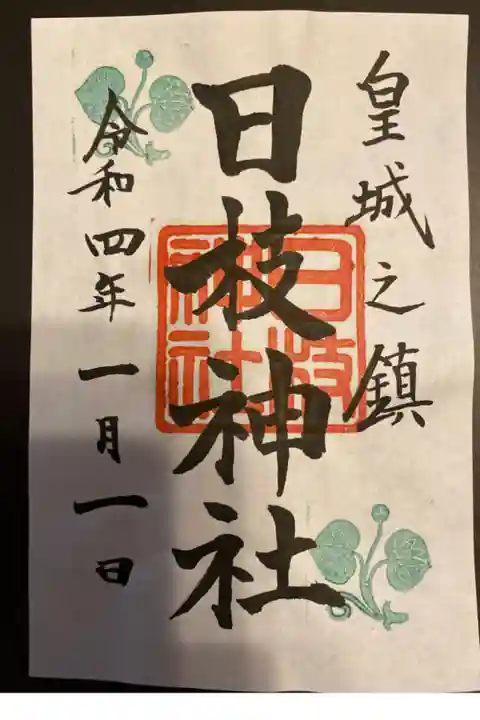 皇城之鎮
日枝神社
日枝神社
令和四年一月一日